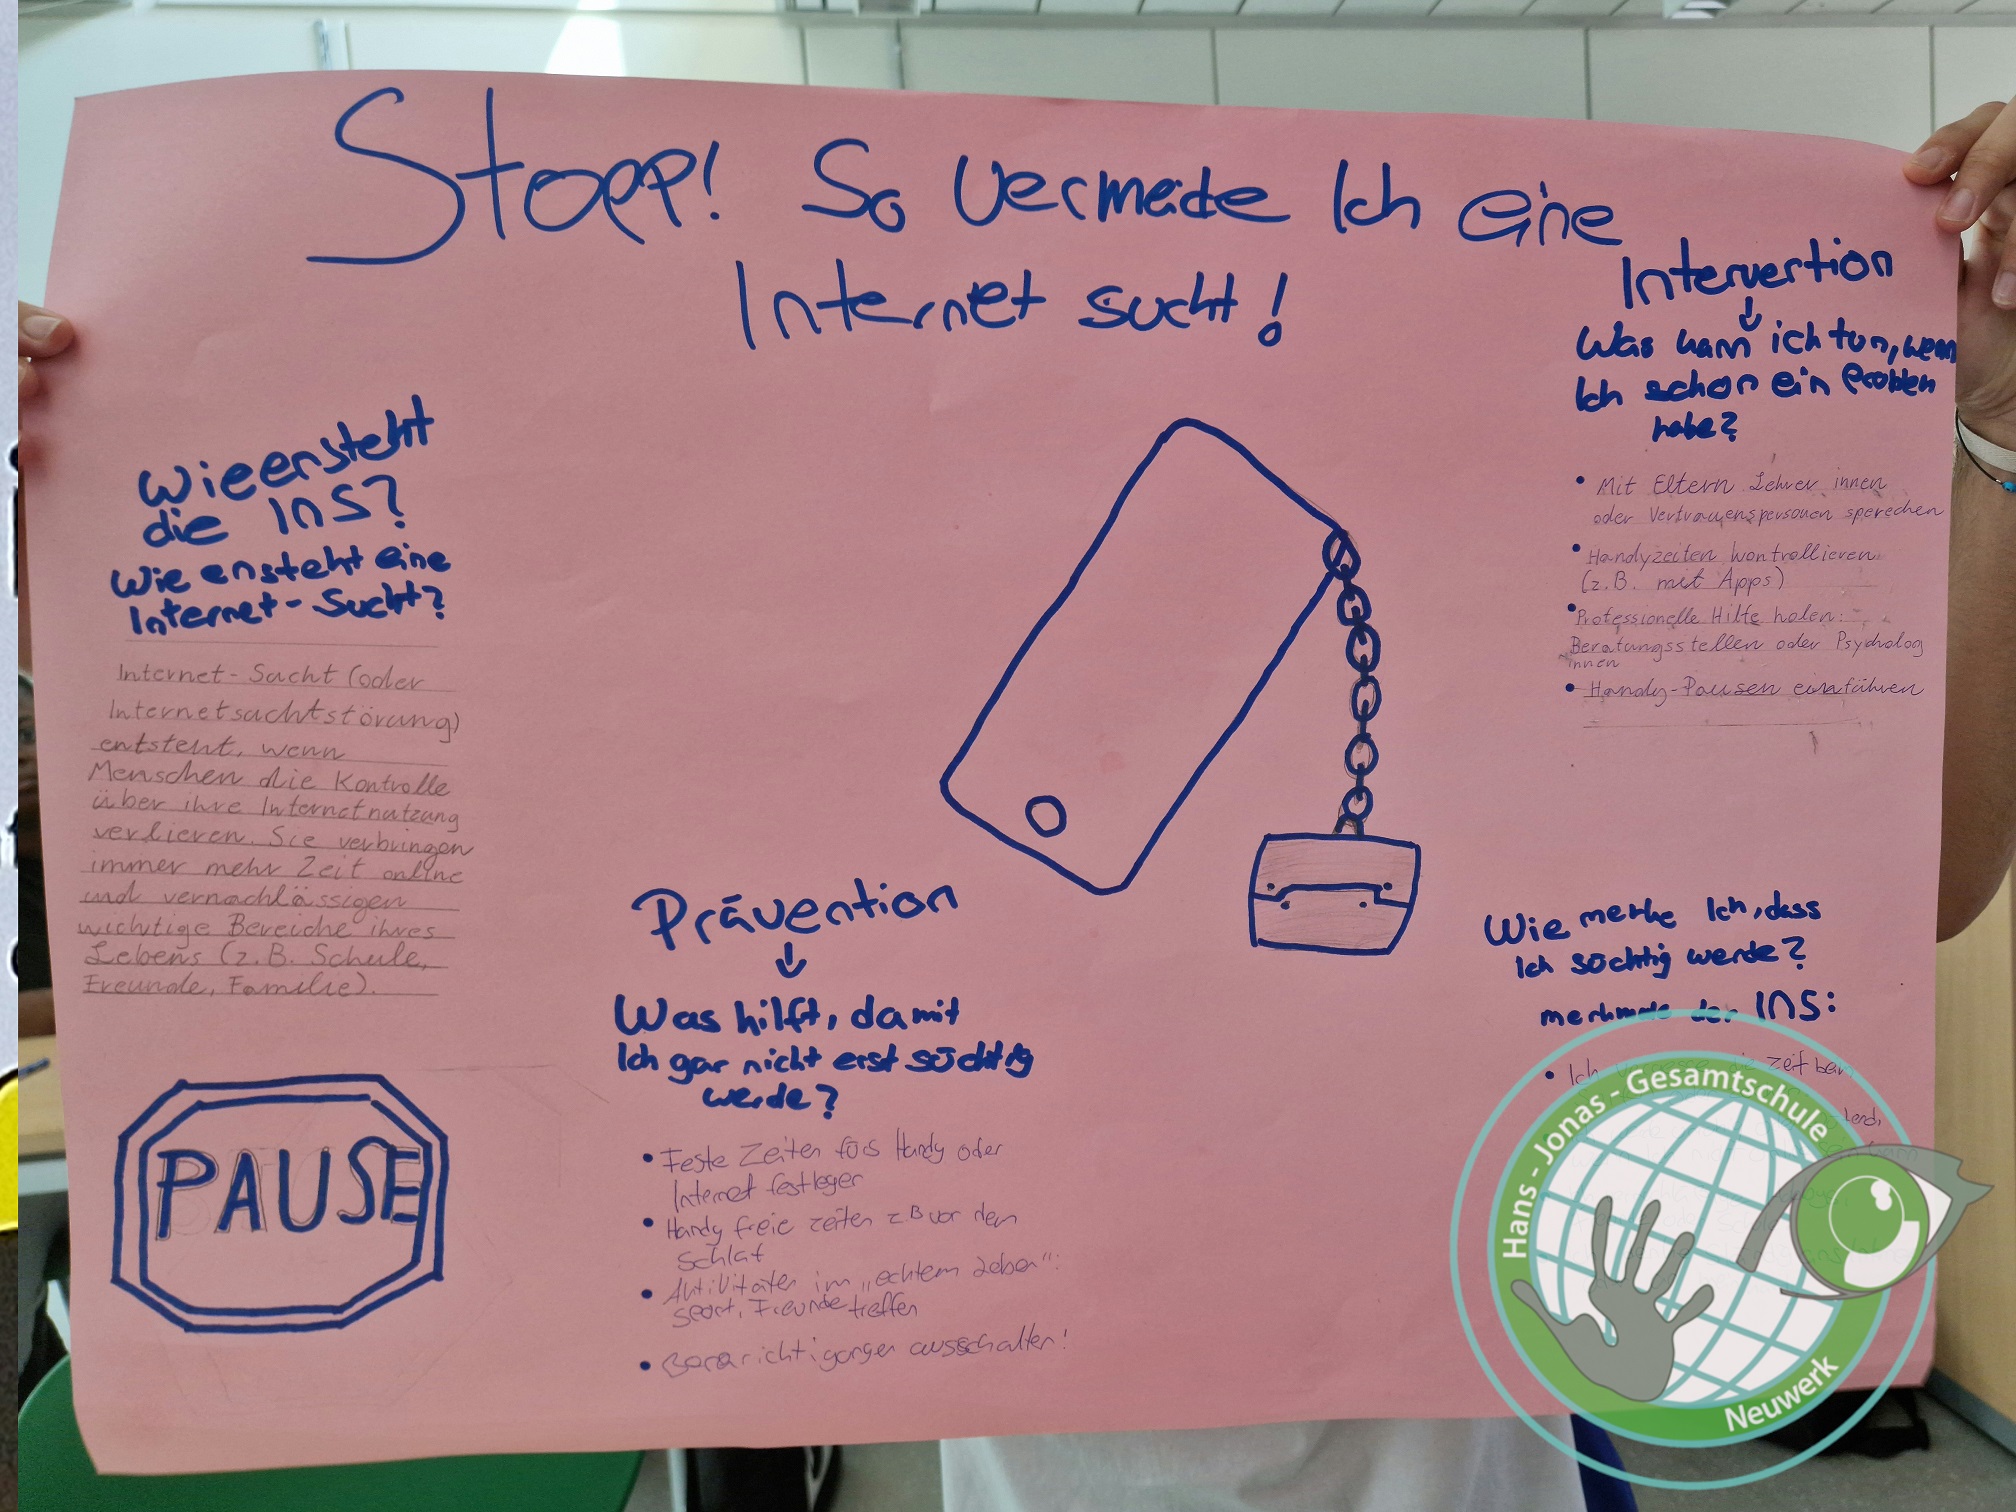 Stopp! So vermeide Ich eine
Internet sucht!
Wie ensteht
die INS?
Wie ensteht eine
Internet-Sucht?
Internet-Sucht (oder
Internetsuchtstörung)
entsteht, wenn
Menschen die Kontrolle
über ihre Internetnutzung
verlieren. Sie verbringen
immer mehr Zeit online
und vernachlässigen
wichtige Bereiche ihres
Lebens (z.B. Schule,
Freunde, Familie).
PAUSE
Prävention
↓
Was hilft, damit
Ich gar nicht erst süchtig
werde?
• Feste Zeiten fürs Handy oder
Internet festlegen
• Handy freie zeiten z.B vor dem
Schlaf
• Aktivitäten im „echtem Leben":
Sport, Freunde treffen
• ausschalten!
Intervention
↓
Was kann ich tun, wenn
Ich schon ein Problem
habe?
• Mit Eltern Lehrer innen
oder Vertrauenspersonen sperechen
• Handyzeiten kontrollieren
(z.B. mit Apps)
• Professionelle Hilfe holen:
Beratungsstellen oder Psycholog
innen
• Handy-Pausen einführen
Wie merke Ich, dass
Ich süchtig werde?
merkmale der INS:
• Ich die Zeit beim
Hans - Jonas - Gesamtschule
Neuwerk